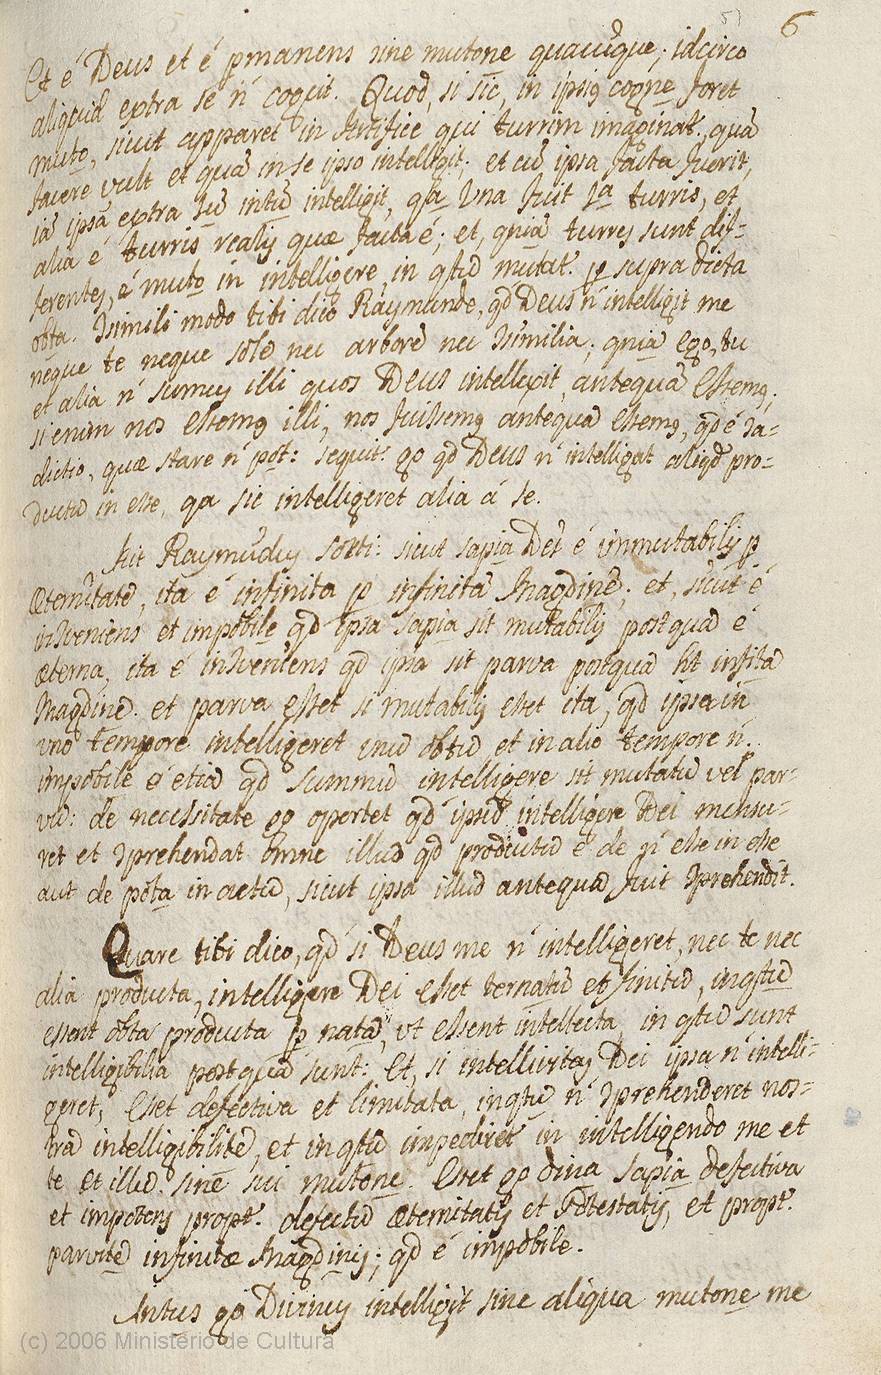 6
Et é Deus et é pmanens sine mutone quacuq̃e; idcirco
aliquid extra se ń cogit. Quod, si sic, in ipsiq cogne foret
muto, sicut apparet in Artifice qui turrim imaginat., quā
facere vult et quā in se ipso intelligit; et cū ipsa facta fuerit,
iā ipsā extra suū intū intelligit, qa Una fuit Ja turris, et
alia é turris realis quæ facta é; et, quiā turres sunt dif-
ferentes, é muto in intelligere, in qtū mutat. p supra dicta
obta. Jsimili modo tibi dico Raymunde, qd Deus ń intelligit me
neque te neque solē nec arborē nec Jsimilia; quiā Ego, tu
et alia ń sumus illi quos Deus intellexit, antequā Essemq;
si enim nos Essemq illi, nos fuissemq antequā Essemq, qd é Ja-
dictio, quæ stare ń pot: sequit. go qd Deus ń intelligat aliqd pro-
ductū in esse, qa sic intelligeret alia á se.
Ait Raymūdus Sorti: sicut sapia Dei é immutabilis p
Æternitatē, ita é infinita p infinitā Magdinē; et, sicut é
inJveniens et impobile, qd ipsa sapia sit mutabilis postquā é
æterna, ita é inJveniens qd ipsa sit parva postquā hēt infitā
Magdinē. et parva esset si mutabilis esset ita, qd ipsa in
uno tempore intelligeret unū obtū et in alio tempore ń.
impobile é etiā qd summū intelligere sit mutatū vel par-
vū: de necessitate go oportet qd ipsū intelligere Dei mensu-
ret et Jprehendat omne illud qd productū é de ń esse in esse
aut de pota in actū, sicut ipsa illud antequā fuit Jprehendit.
Quare tibi dico, qd si Deus me ń intelligeret, nec te nec
alia producta, intelligere Dei esset ternatū et finitū, inqtū
essent obta producta p natā, vt essent intellecta, in qtū sunt
intelligibilia postquā sunt: Et, si intellivitas Dei ipsa ń intelli-
geret, Esset defectiva et limitata, inqtū ń Jprehenderet nos-
trā intelligibilitē, et in qtū impediret in intelligendo me et
te et illud sine sui mutone. Esset go dīna sapia defectiva
et impotens propt. defectū Æternitatis et Potestatis, et propt.
parvitē infinitæ Magdinis; qd é impobile.
Intus go Divinus intelligit sine aliqua mutone me
(c) 2006 Ministerio de Cultura